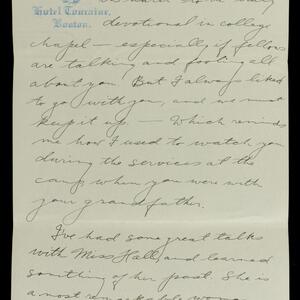 Hotel Touraine,
Boston.
devotional in college
chapel — especially if fellows
are talking and fooling all
about you. But I always liked
to go with you, and we must
keep it up — Which reminds
me how I used to watch you
during the services at the
camp when you were with
your grandfather.
I've had some great talks
with Miss Hall, and learned
something of her past. She is
a most remarkable woman